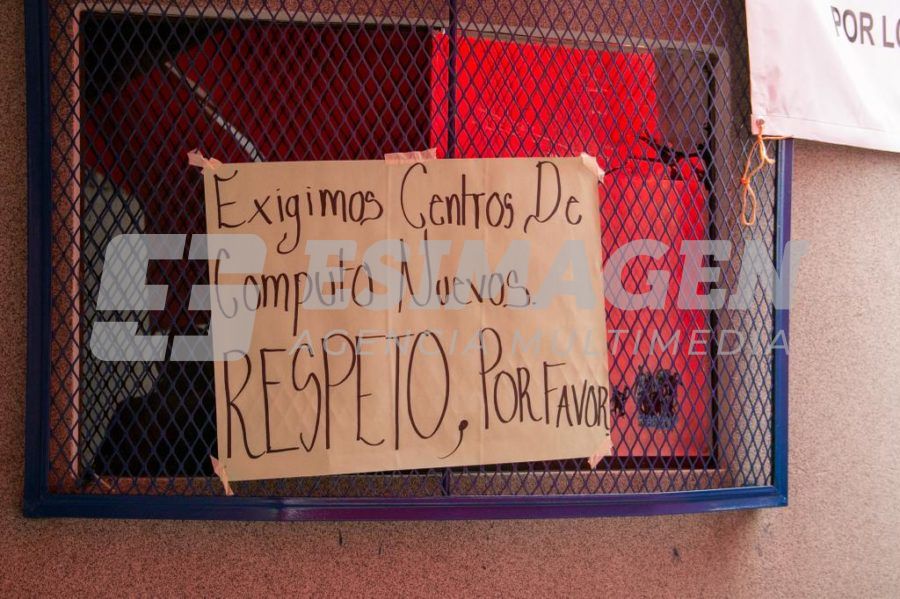 POR LO
Exigimos Centros De
Computo Nuevos.
RESPETO, POR FAVOR
ESIMAGEN
AGENCIA MULTIMEDIA